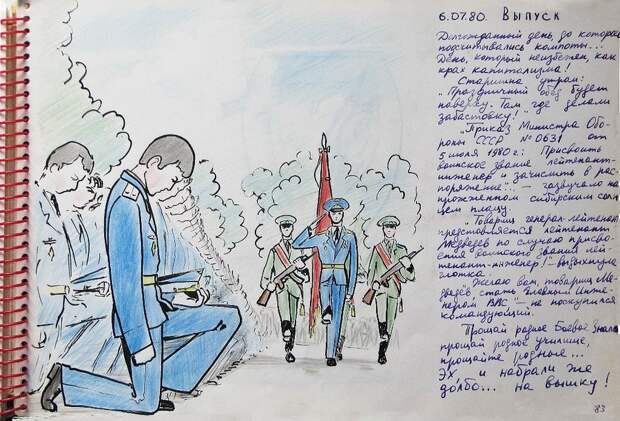 6.07.80. Выпуск
Долгожданный день, до которого
подсчитывались компоты...
День, который неизбежен, как
крах капитализма!
Старшина утром:
"Праздничный обед будет
наверху. Там где делали
забастовку!"
"Приказ Министра Обо-
роны СССР № 0631 от
5 июля 1980 г: Присвоить
воинское звание лейтенант-
инженер и зачислить в рас-
поряжение..." — прозвучало на
прожжённом сибирским солн-
цем плацу.
"Товарищ генерал-лейтенант
представляется лейтенант
Медведев по случаю присво-
ения воинского звания лей-
тенант-инженер!" — выдохнула
глотка
"Желаю вам, товарищ Мед-
ведев, стать Главным Инже-
нером ВВС" — не поскупился
командующий.
Прощай родное Боевое Знамя
прощай родное училище,
прощайте родные...
Эх, и набрали же
долбо... на вышку!
83